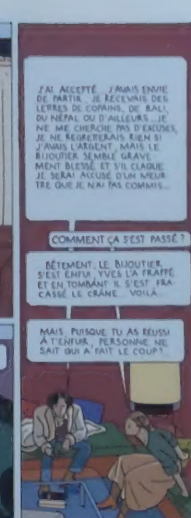 J'AI ACCEPTÉ. J'AVAIS ENVIE
DE PARTIR. JE RECEVAIS DES
LETRES DE COPAINS, DE BALI,
DU NÉPAL OU D'AILLEURS... JE
NE ME CHERCHE PAS D'EXCUSES,
JE NE REGRETTERAIS RIEN SI
J'AVAIS L'ARGENT, MAIS LE
BIJOUTIER SEMBLE GRAVE-
MENT BLESSÉ ET S'IL CLAQUE
JE SERAI ACCUSÉ D'UN MEUR-
TRE QUE JE N'AI PAS COMMIS...
COMMENT ÇA S'EST PASSÉ ?
BÊTEMENT. LE BIJOUTIER
S'EST ENFUI, YVES L'A FRAPPÉ
ET EN TOMBANT IL S'EST FRA-
CASSÉ LE CRÂNE... VOILÀ...
MAIS, PUISQUE TU AS RÉUSSI
À T'ENFUIR, PERSONNE NE
SAIT QUI A FAIT LE COUP ?...